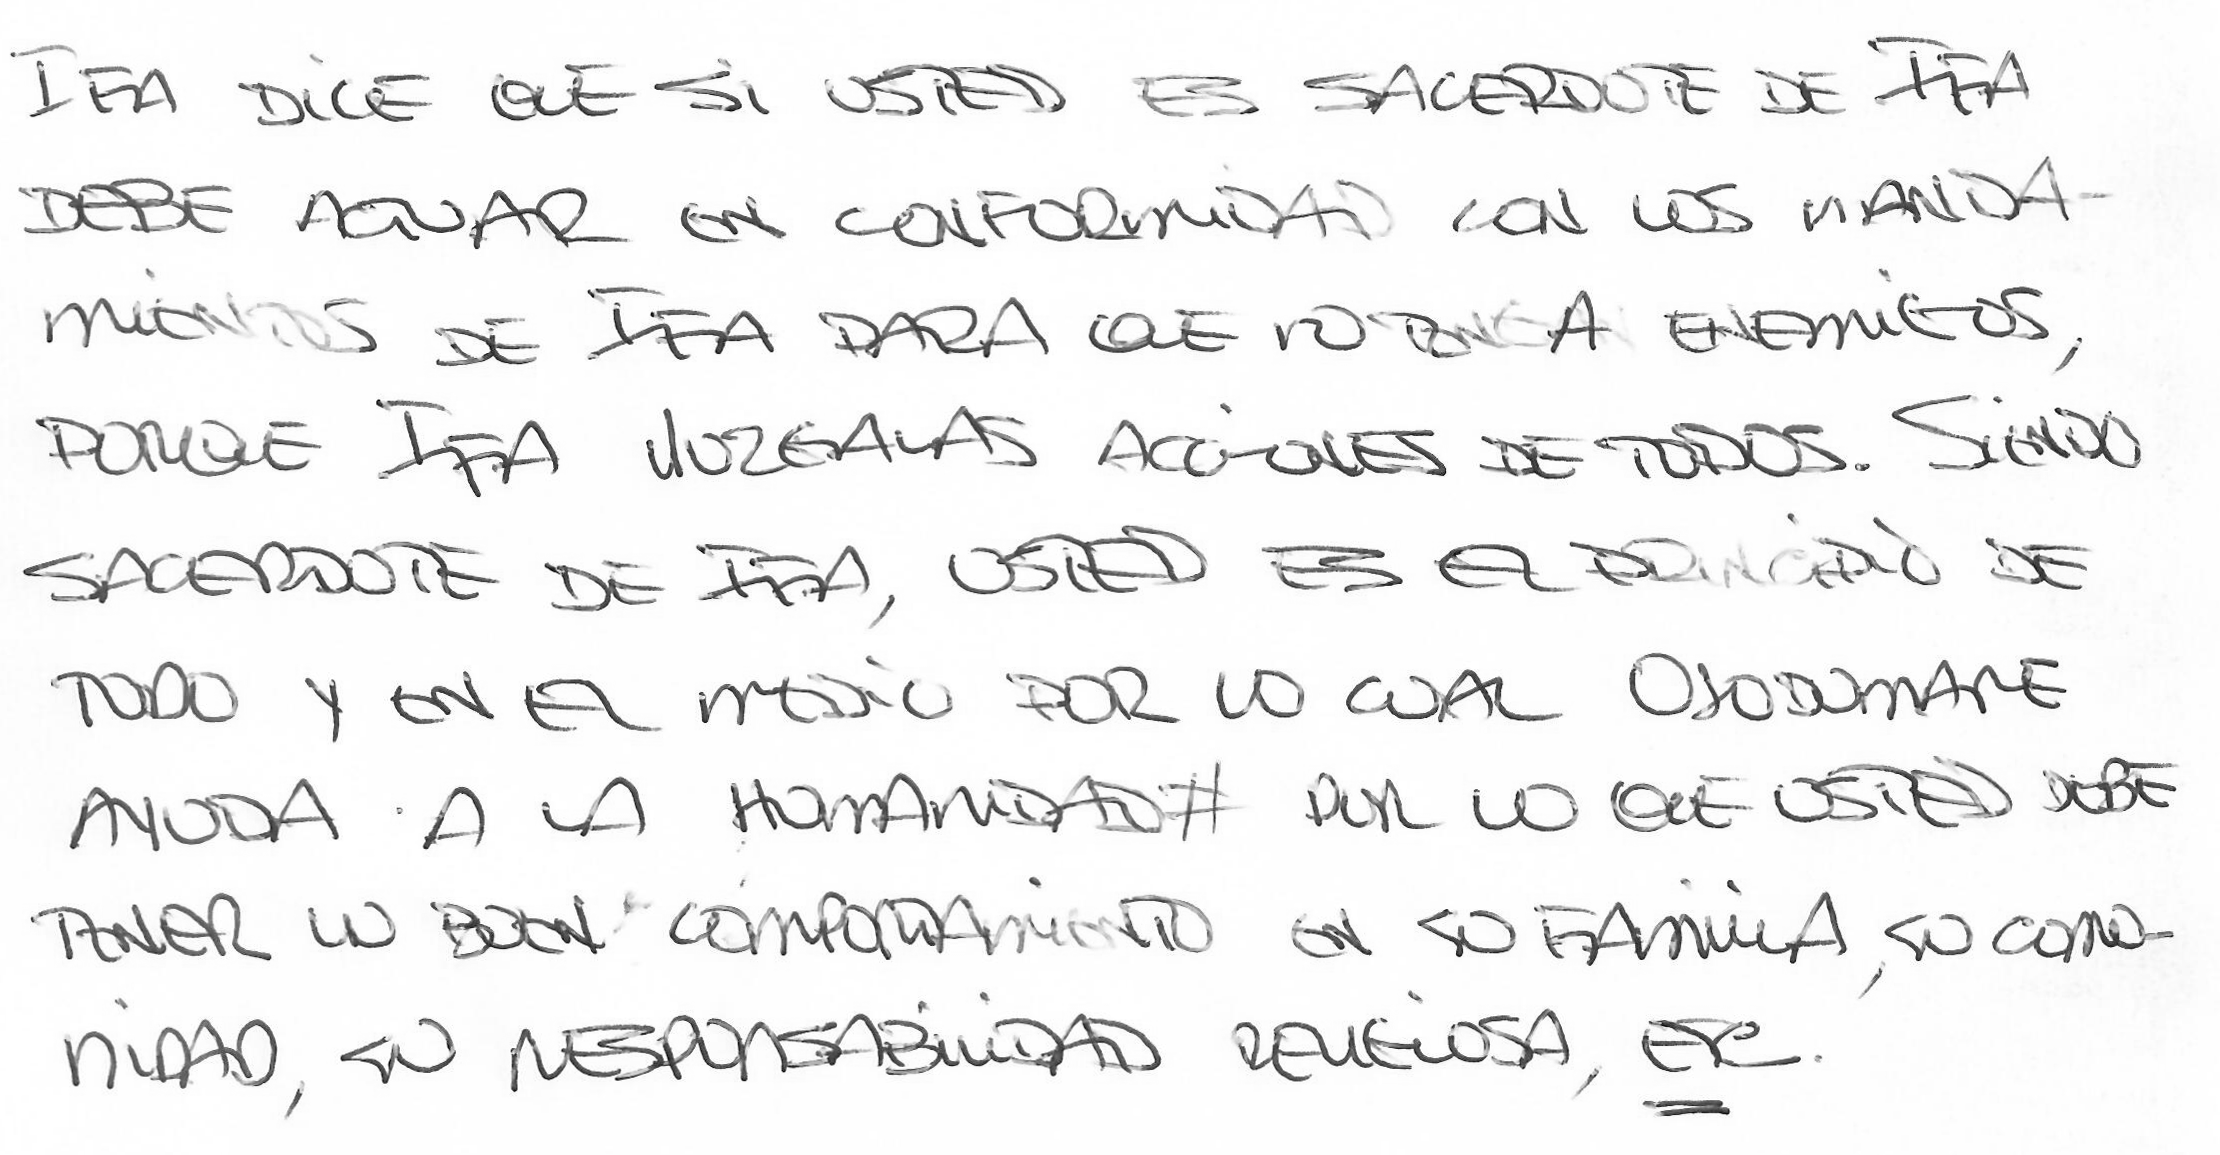 IFA DICE QUE SI USTED ES SACERDOTE DE IFA
DEBE ACTUAR EN CONFORMIDAD CON LOS MANDA-
MIENTOS DE IFA PARA QUE NO TENGA ENEMIGOS,
PORQUE IFA JUZGA LAS ACCIONES DE TODOS. SIENDO
SACERDOTE DE IFA, USTED ES EL PRINCIPIO DE
TODO Y EN EL MEDIO POR LO CUAL OLODUMARE
AYUDA A LA HUMANIDAD # POR LO QUE USTED DEBE
TENER LO BUEN COMPORTAMIENTO EN SU FAMILIA, SU COMU-
NIDAD, SU RESPONSABILIDAD RELIGIOSA, ETC.